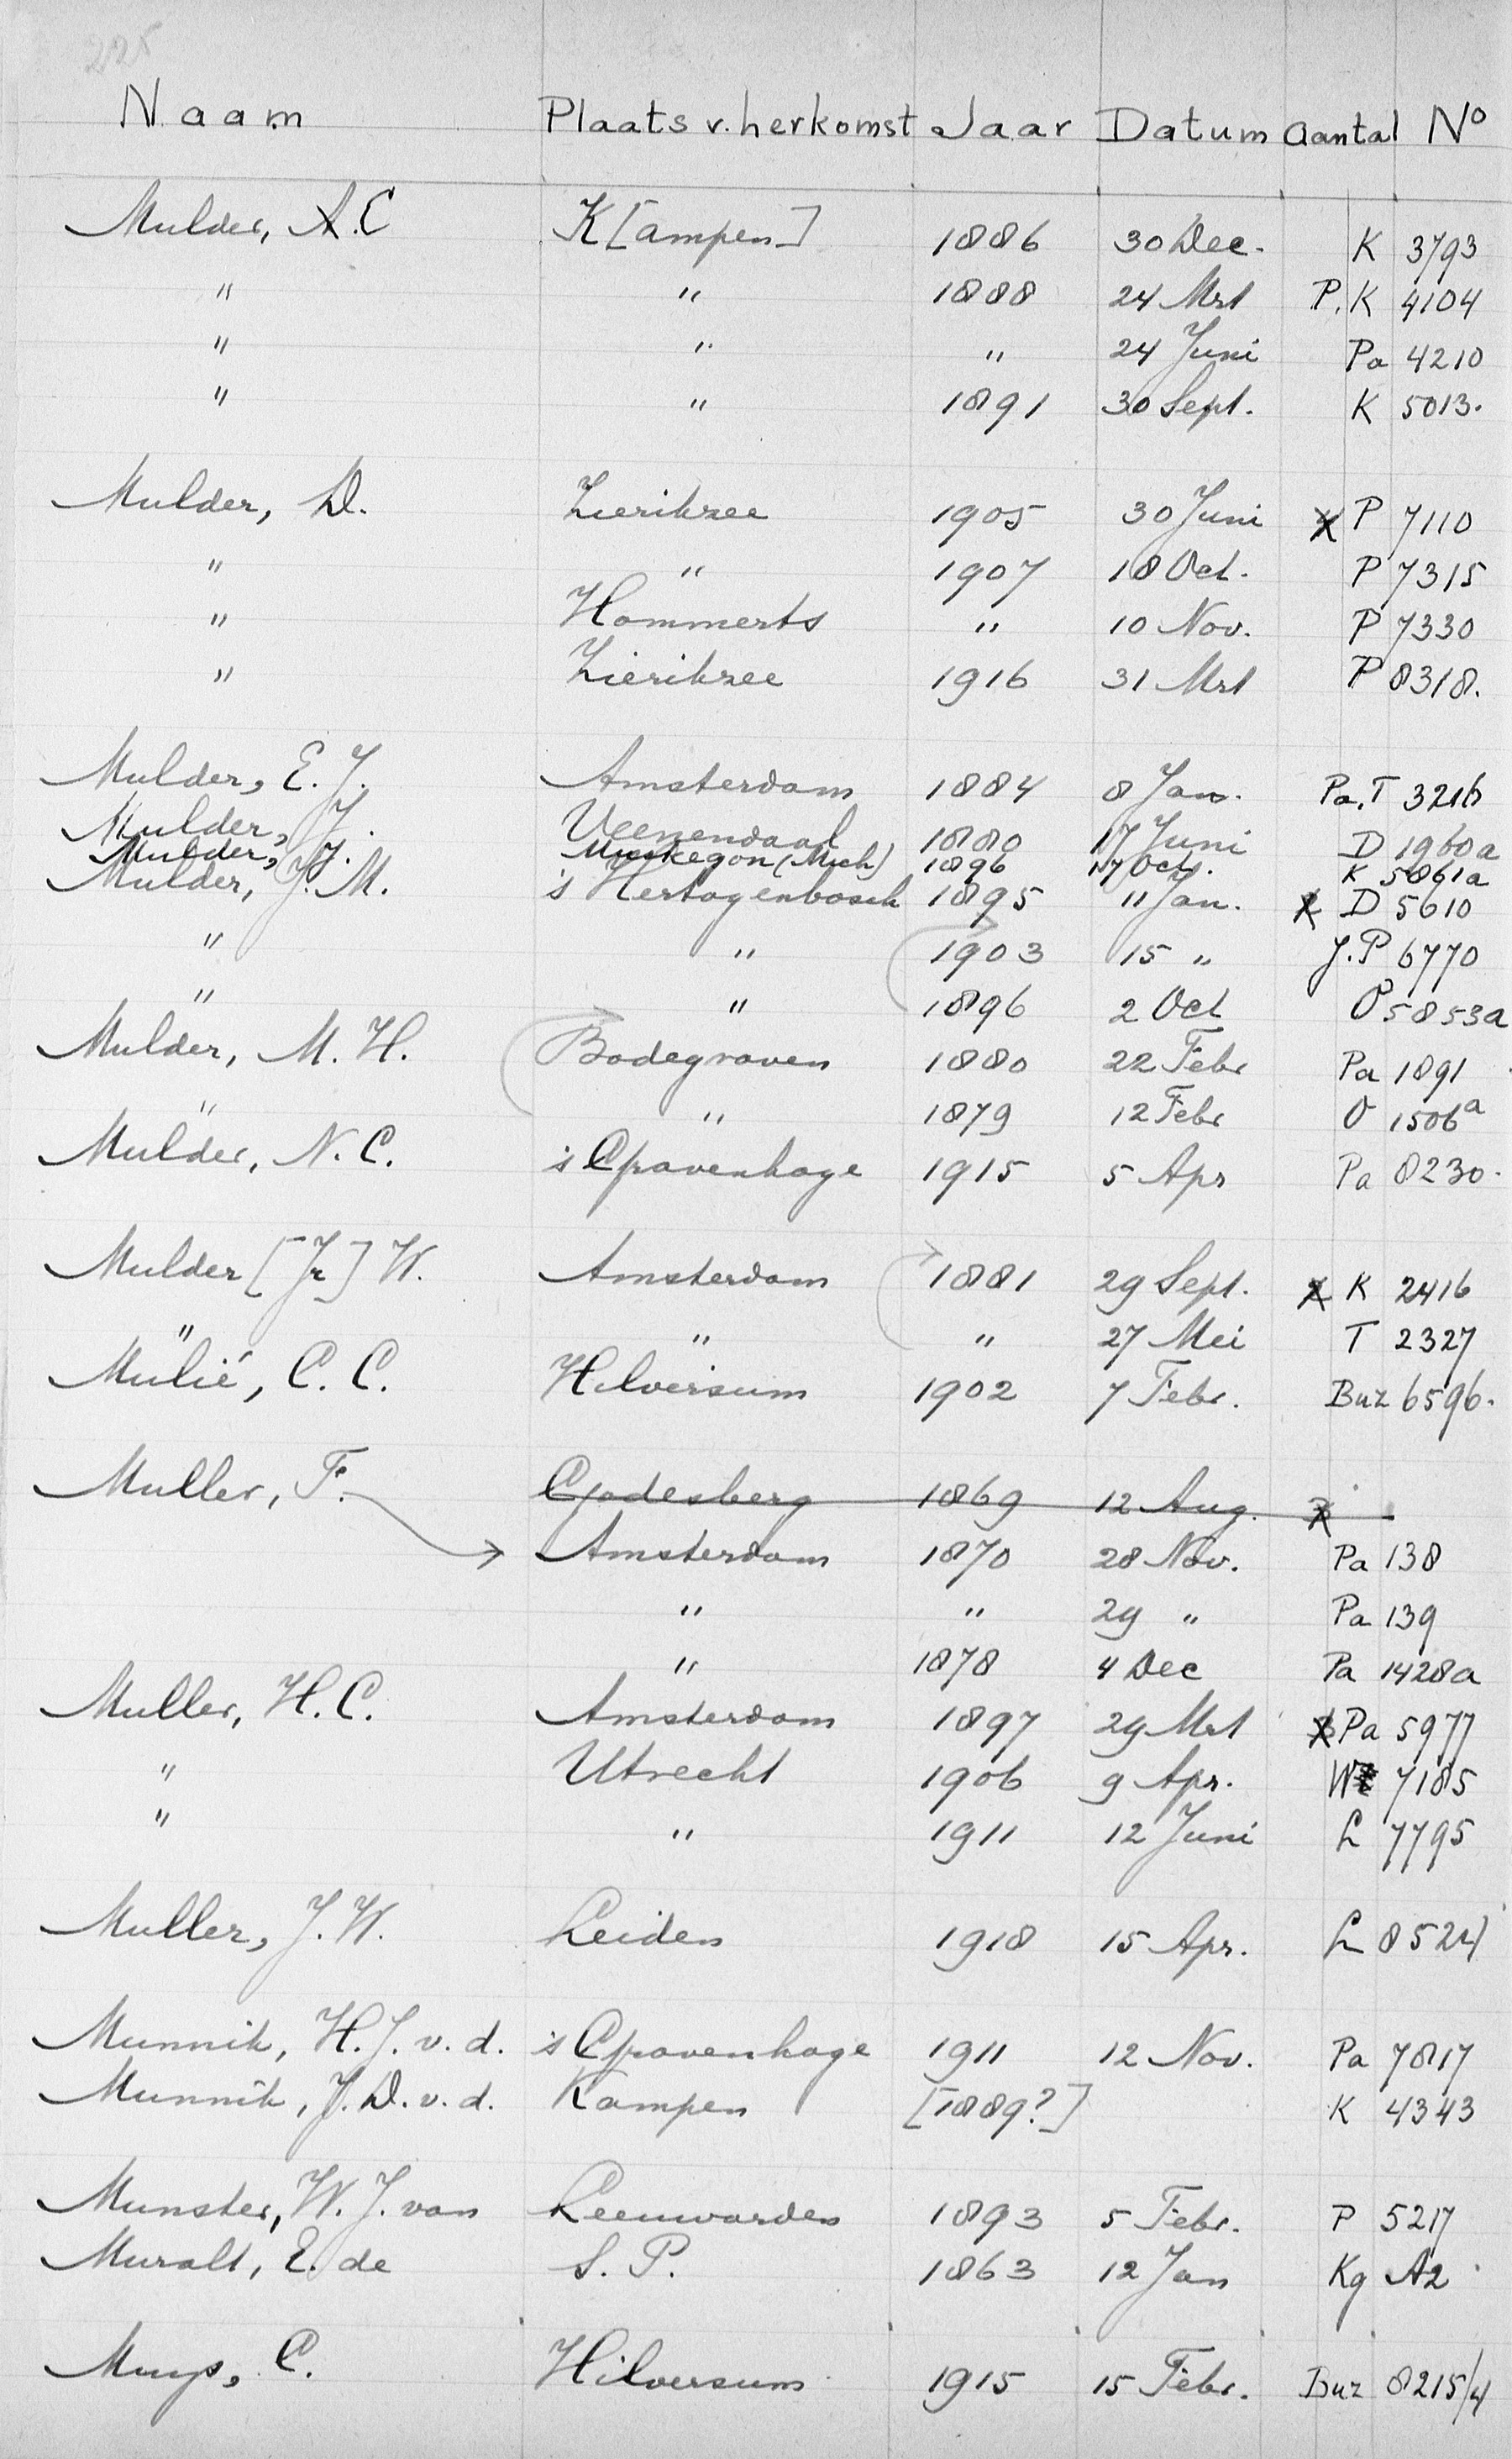 225
Naam Plaats v. herkomst Jaar Datum Aantal No
Mulder, A.C K[ampen] 1886 30 Dec. K 3793
" " 1888 24 Mrt P. K 4104
" " " 24 Juni Pa 4210
" " 1891 30 Sept. K 5013.
Mulder, D. Zierikzee 1905 30 Juni P 7110
" " 1907 18 Oct. P 7315
" Hommerts " 10 Nov. P 7330
" Zierikzee 1916 31 Mrt P 8318.
Mulder, E. J. Amsterdam 1884 8 Jan. Pa. T 3216
Mulder, J. Veenendaal 1880 17 Juni D 1960a
Mulder, J. Muskegon (Mich) 1896 17 Oct. K 5861a
Mulder, J. M. 's Hertogenbosch 1895 11 Jan. D 5610
" " 1903 15 " J. P 6770
" " 1896 2 Oct O 5853a
Mulder, M. H. Bodegraven 1880 22 Febr Pa 1891
" " 1879 12 Febr O 1506a
Mulder, N. C. 's Gravenhage 1915 5 Apr Pa 8230.
Mulder [Jr] W. Amsterdam 1881 29 Sept. K 2416
" " " 27 Mei T 2327
Mulié, C. C. Hilversum 1902 7 Febr. Buz 6596.
Muller, F. Godesberg 1869 12 Aug.
Amsterdam 1870 28 Nov. Pa 138
" " 29 " Pa 139
" 1878 4 Dec Pa 1428a
Muller, H. C. Amsterdam 1897 29 Mrt Pa 5977
" Utrecht 1906 9 Apr. W 7185
" " 1911 12 Juni L 7795
Muller, J. W. Leiden 1918 15 Apr. L 8524
Munnik, H. J. v. d. 's Gravenhage 1911 12 Nov. Pa 7817
Munnik, J. D. v. d. Kampen [1889?] K 4343
Munster, W. J. van Leeuwarden 1893 5 Febr. P 5217
Muralt, E. de S. P. 1863 12 Jan Kg A2
Muys, C. Hilversum 1915 15 Febr. Buz 8215/4